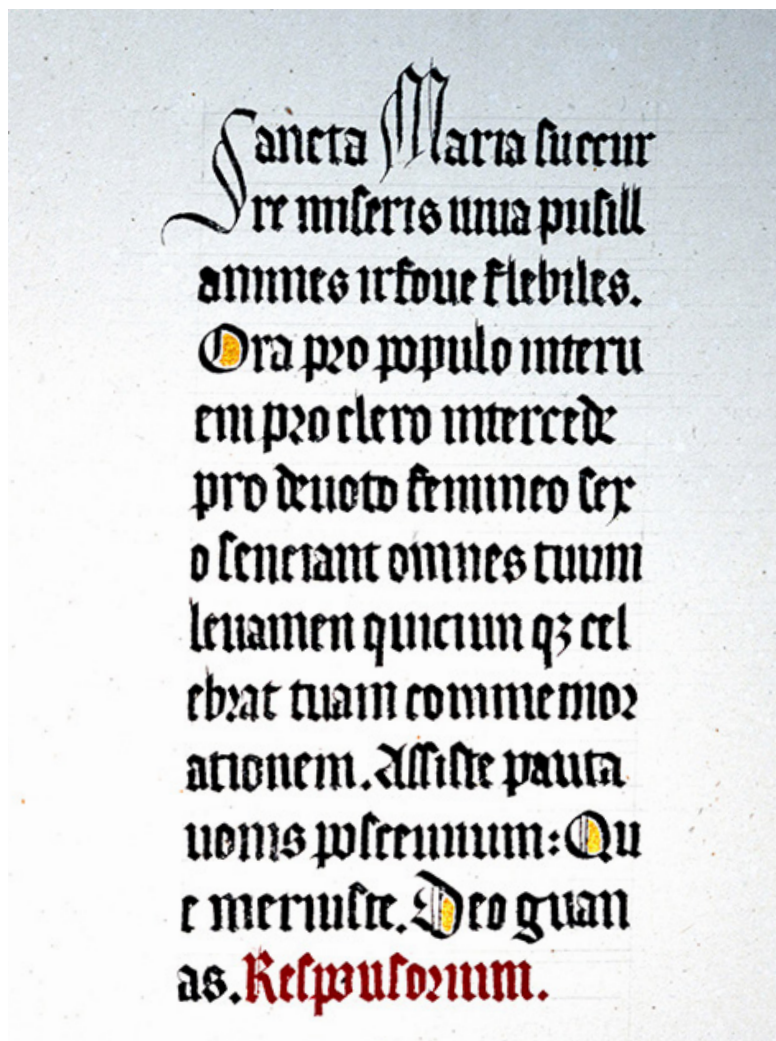 Sancta Maria succur
re miseris iuua pusill
animes refoue flebiles.
Ora pro populo interu
eni pro clero intercede
pro deuoto femineo sex
o senciant omnes tuum
leuamen quicunqꝫ cel
ebrat tuam commemor
ationem. Assiste parata
uotis poscentium: Qu
e meruiste. Deo gratias
as. Responsorium.